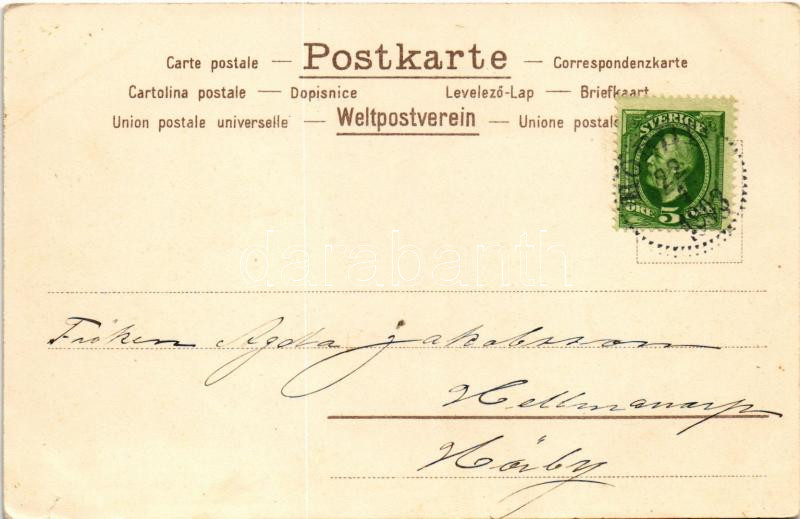 Carte postale — Postkarte — Correspondenzkarte
Cartolina postale — Dopisnice Levelező-Lap — Briefkaart
Union postale universelle — Weltpostverein — Unione postale
SVERIGE
ÖRE 5
22
1903
darabanth
Fröken Agda Jakobsson
Hellmanarp
Hörby